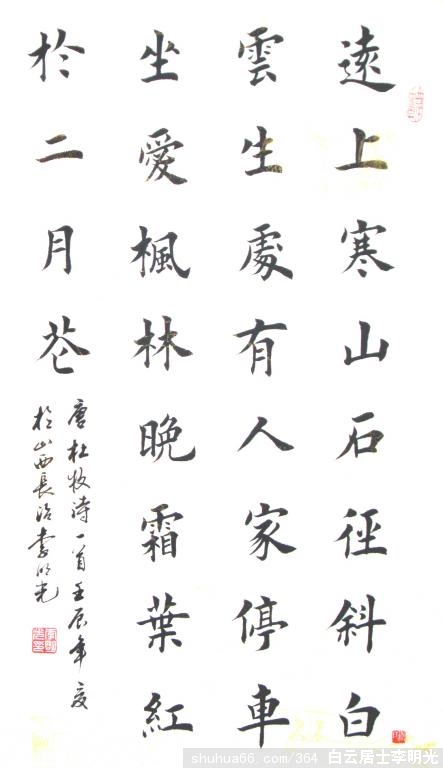 遠上寒山石徑斜白
雲生處有人家停車
坐愛楓林晚霜葉紅
於二月花
唐杜牧詩一首壬辰年夏
於山西長治李明光
shuhua66.com/364 白云居士李明光